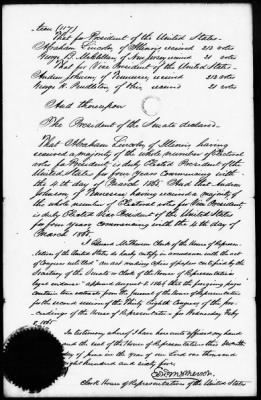 teen (117)
That for President of the United States—
Abraham Lincoln, of Illinois, received 212 votes
George B. McClellan of New Jersey received 21 votes
That for Vice President of the United States—
Andrew Johnson, of Tennessee, received 212 votes
George H. Pendleton, of Ohio, received 21 votes
And thereupon
The President of the Senate declared—
That Abraham Lincoln, of Illinois, having
received a majority of the whole number of Electoral
votes for President is duly Elected President of the
United States for four years Commencing with
the 4th day of March 1865. And that Andrew
Johnson, of Tennessee, having received a majority of
the whole number of Electoral votes for Vice President
is duly Elected Vice President of the United States
for four years, commencing with the 4th day of
March 1865.
I Edward McPherson Clerk of the House of Repres-
entatives of the United States do hereby certify, in accordance with the act
of Congress entitled "An act making copies of papers certified by the
Secretary of the Senate or Clerk of the House of Representatives
legal evidence" approved August 8 1846 that the foregoing pages
contain true extracts from the Journal of the House of Representatives
for the second session of the Thirty Eighth Congress of the pro-
ceedings of the House of Representatives for Wednesday Feby
8, 1865.
In testimony whereof I have hereunto affixed my hand
and the seal of the House of Representatives this
day of June in the year of our Lord one thousand
eight hundred and sixty five.
Edw McPherson
Clerk House of Representatives of the United States